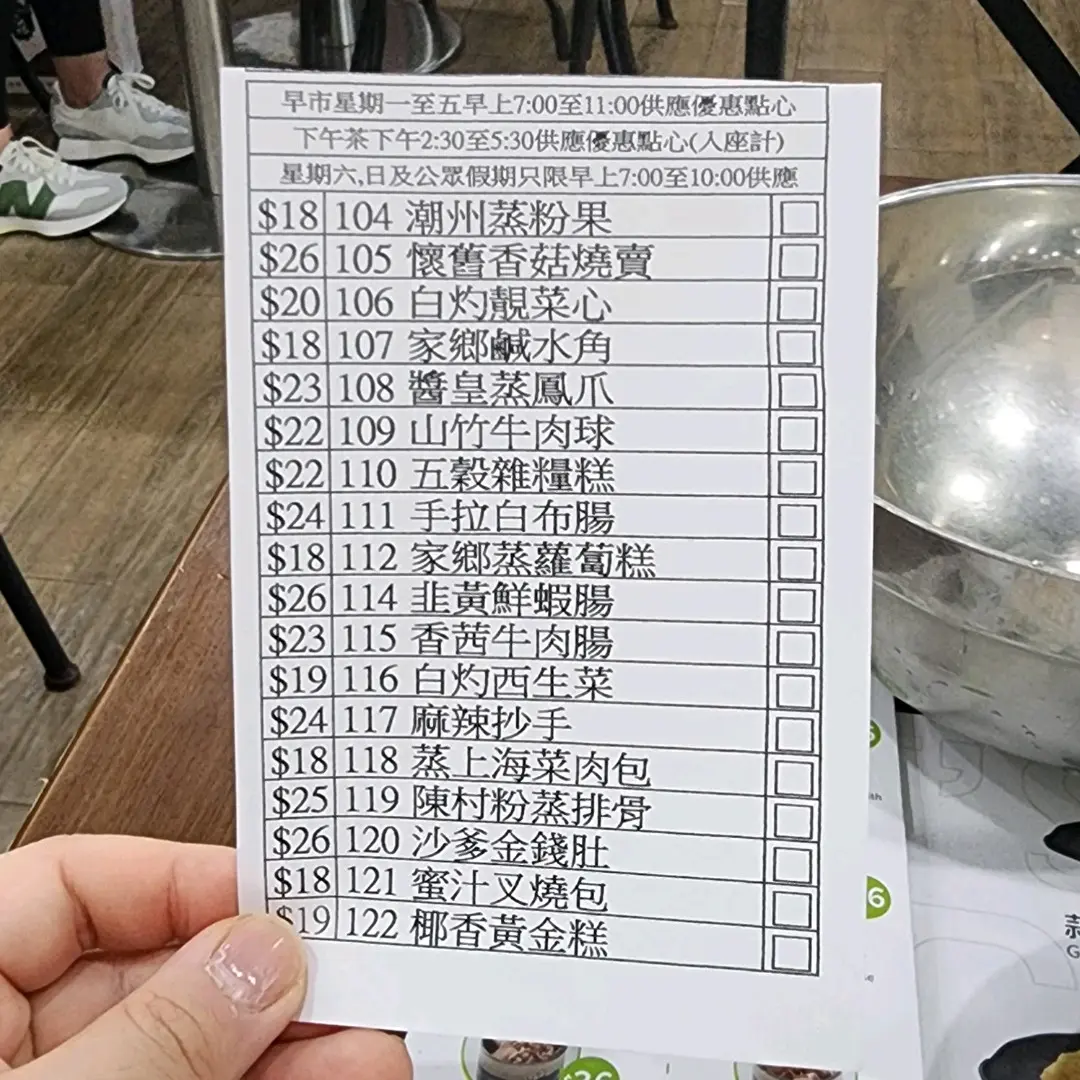 早市星期一至五早上7:00至11:00供應優惠點心
下午茶下午2:30至5:30供應優惠點心(入座計)
星期六,日及公眾假期只限早上7:00至10:00供應
$18 104 潮州蒸粉果
$26 105 懷舊香菇燒賣
$20 106 白灼靚菜心
$18 107 家鄉鹹水角
$23 108 醬皇蒸鳳爪
$22 109 山竹牛肉球
$22 110 五穀雜糧糕
$24 111 手拉白布腸
$18 112 家鄉蒸蘿蔔糕
$26 114 韭黃鮮蝦腸
$23 115 香茜牛肉腸
$19 116 白灼西生菜
$24 117 麻辣抄手
$18 118 蒸上海菜肉包
$25 119 陳村粉蒸排骨
$26 120 沙爹金錢肚
$18 121 蜜汁叉燒包
$19 122 椰香黃金糕